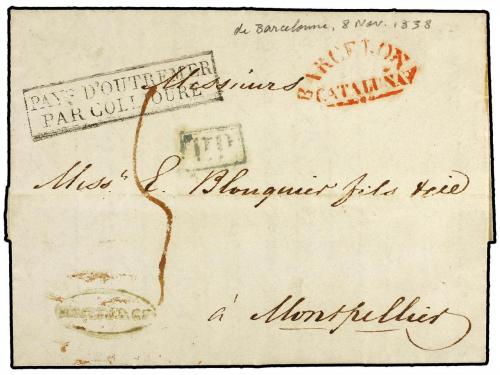 de Barcelonne, 8 Nov. 1838
BARCELONA
CATALUÑA
PAYS D'OUTREMER
PAR COLLIOURE
Messieurs
P.P.
Miss.rs E. Blouquier fils & cie
5
à Montpellier